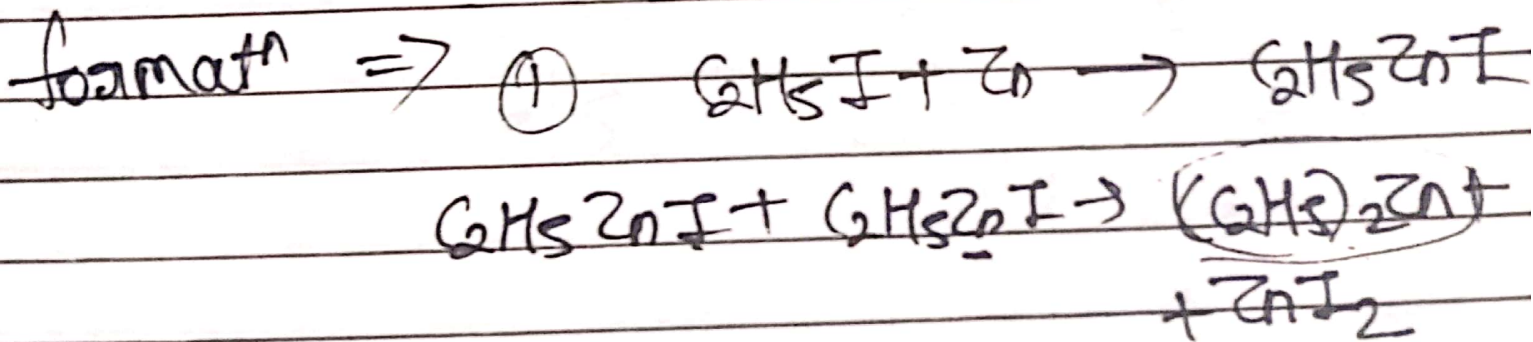 formatn => ① C2H5I + Zn → C2H5ZnI
C2H5ZnI + C2H5ZnI → (C2H5)2Zn +
+ ZnI2